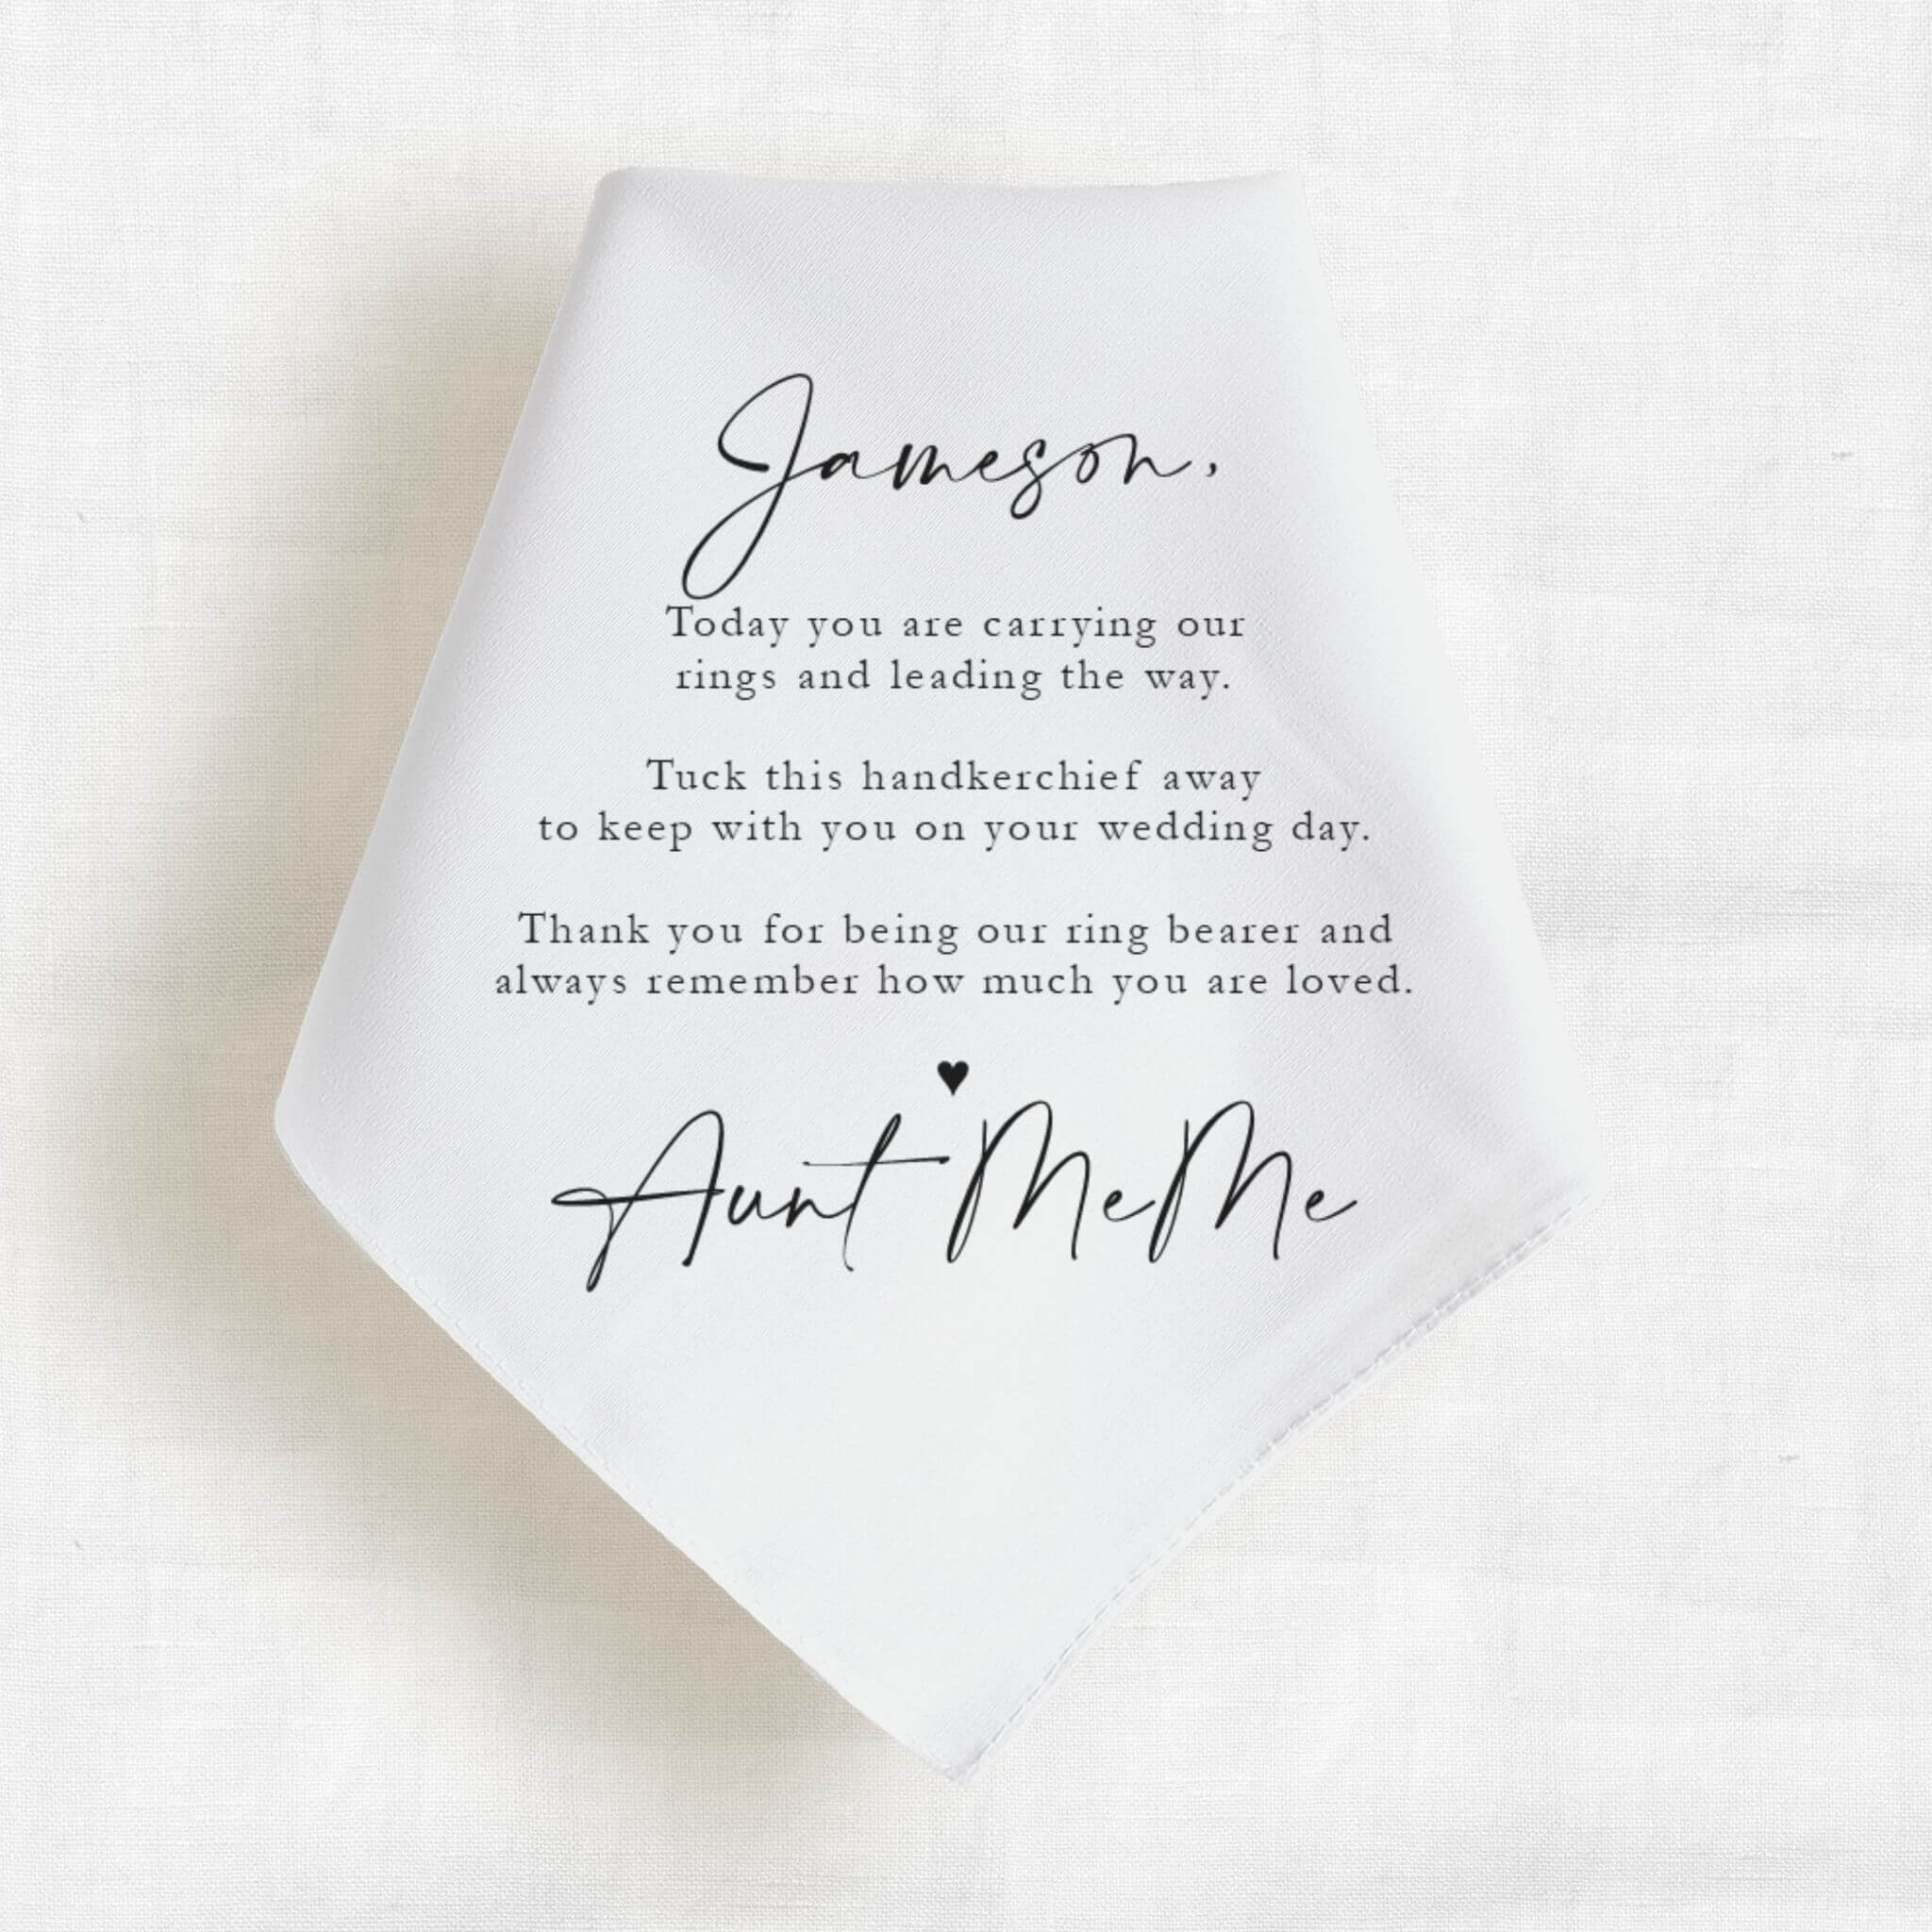 Jameson,
Today you are carrying our
rings and leading the way.
Tuck this handkerchief away
to keep with you on your wedding day.
Thank you for being our ring bearer and
always remember how much you are loved.
♥
Aunt MeMe